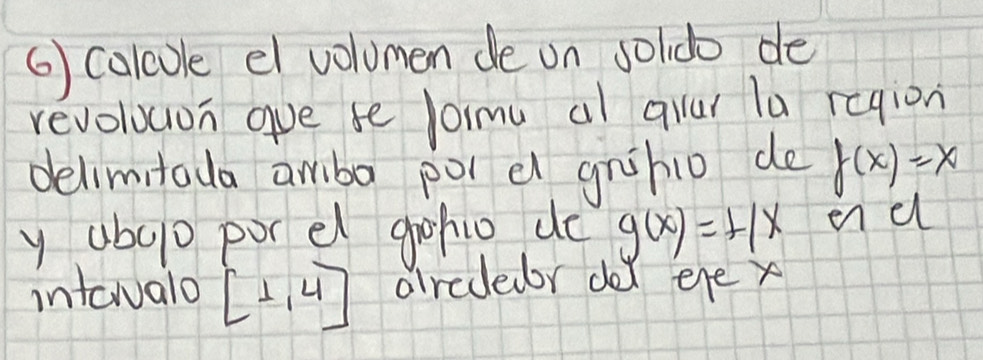 6) Calcule el volumen de un solido de
revolución que se forma al girar la region
delimitada arriba por el gráfico de f(x)=x
y abajo por el gráfico de g(x)=1/x en el
intervalo [1,4] alrededor del eje x